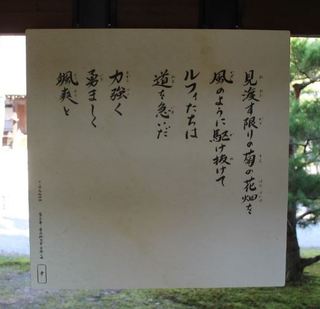 見渡す限りの菊の花畑を
風のように駆け抜けて
ルフィたちは
道を急いだ
力強く
勇ましく
颯爽と